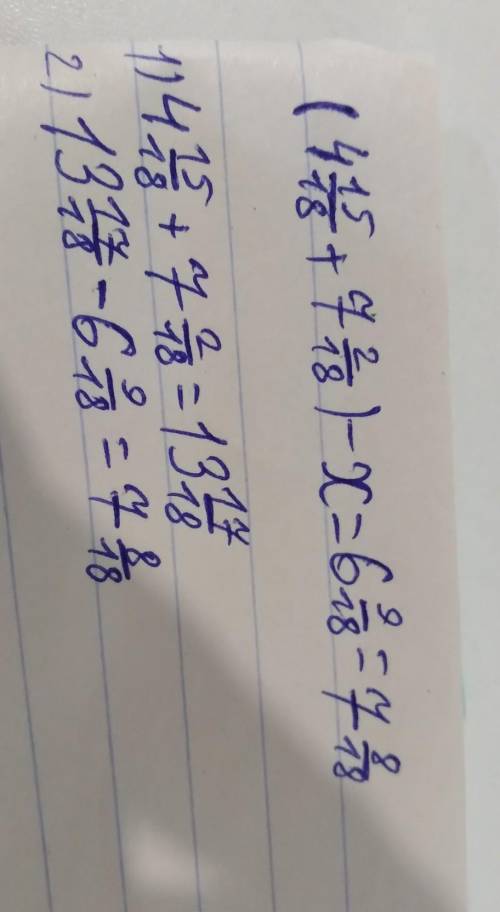 (4 15/18 + 7 2/18) - x = 6 9/18 = 7 8/18
1) 4 15/18 + 7 2/18 = 13 17/18
2) 13 17/18 - 6 9/18 = 7 8/18